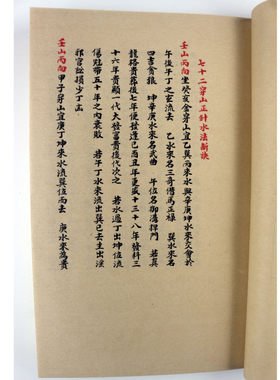 七十二穿山正針水法新訣
壬山丙向坐癸亥金穿山宜乙巽丙來水與辛庚坤水來交會於
午後午丁之玄流去　乙水來名三奇借馬正祿　巽水來名
四吉貪狼　坤辛庚水來名武曲　午位名御溝捍門　若真
龍路貴葬後七年便發達巳酉丑年更盛十三十八年發科三
十六年貴顯一代大發富貴後代次之　若水過丁出坤位流
傷冠帶五十年之內衰敗　若午丁水來流出巽巳去主淫
邪官訟損少丁亡
壬山丙向甲子穿山宜庚丁坤來水流巽位而去　庚水來為貴